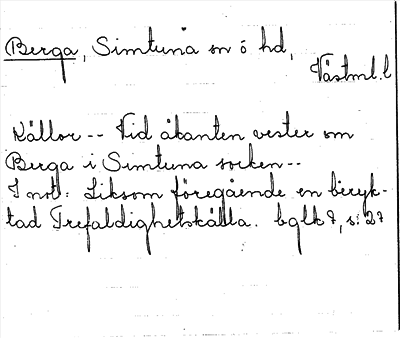 Berga, Simtuna sn ó hd,
Västml. l
Källor -- Vid åkanten vester om
Berga i Simtuna socken --
I not: Liksom föregående en beryk-
tad Trefaldighetskälla. bglk 7, s: 27